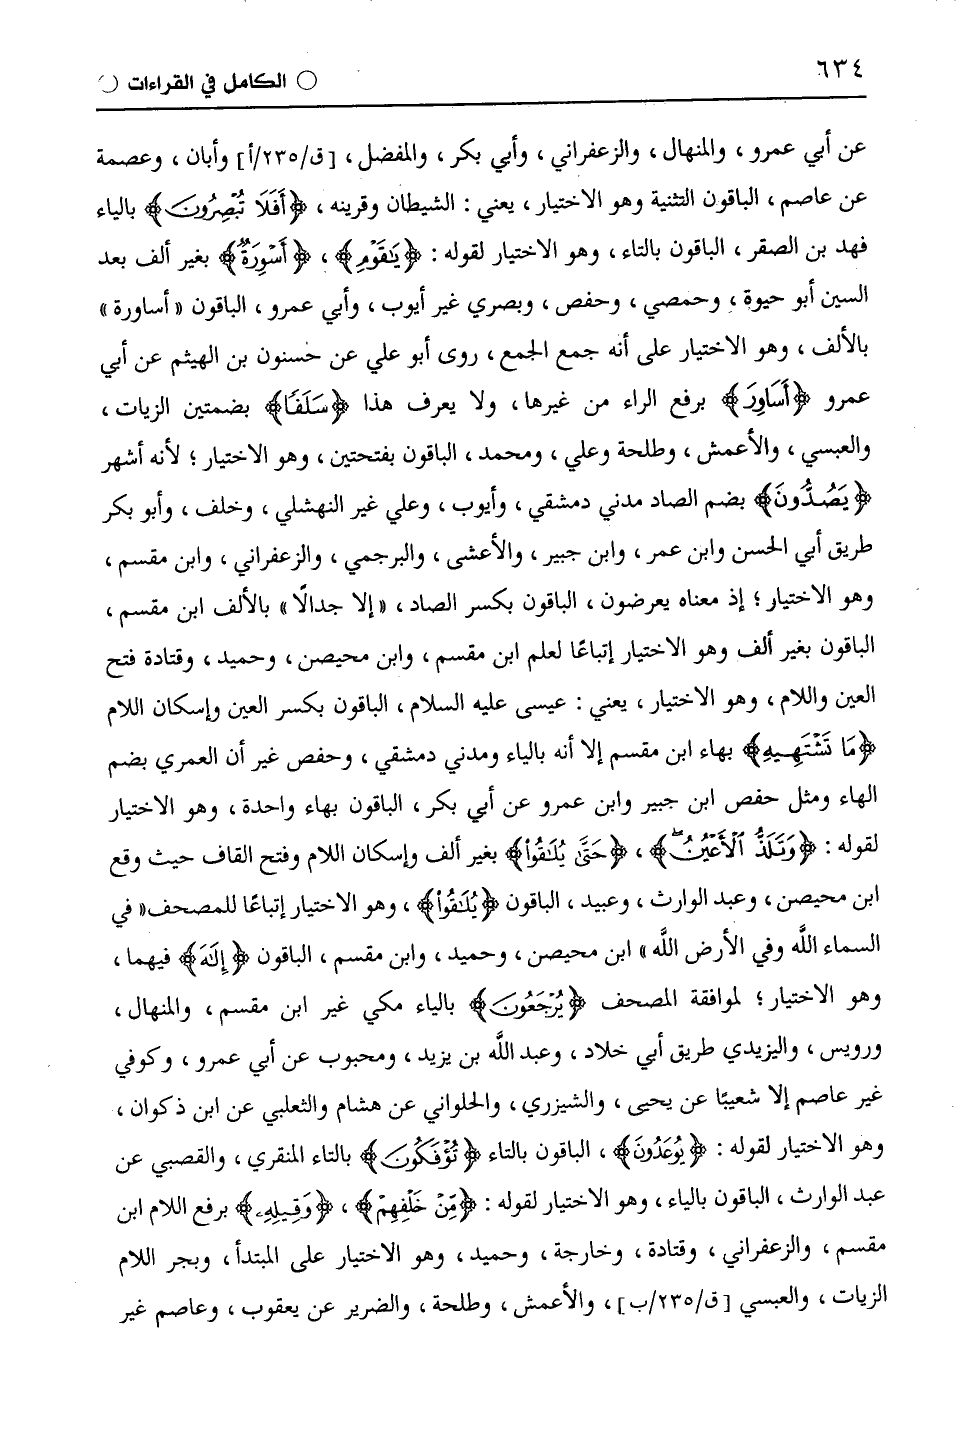 ٦٣٤
الكامل في القراءات
عن أبي عمرو ، والمنهال ، والزعفراني ، وأبي بكر ، والمفضل ، [ق/٢٣٥/أ] وأبان ، وعصمة
عن عاصم ، الباقون التثنية وهو الاختيار ، يعني : الشيطان وقرينه ، ﴿أَفَلَا تُبْصِرُونَ﴾ بالياء
فهد بن الصقر ، الباقون بالتاء ، وهو الاختيار لقوله : ﴿يَٰقَوْمِ﴾ ، ﴿أَسْوِرَةٌ﴾ بغير ألف بعد
السين أبو حيوة ، وحمصي ، وحفص ، وبصري غير أيوب ، وأبي عمرو ، الباقون « أساورة »
بالألف ، وهو الاختيار على أنه جمع الجمع ، روى أبو علي عن حسنون بن الهيثم عن أبي
عمرو ﴿أَسَاوِرَ﴾ برفع الراء من غيرها ، ولا يعرف هذا ﴿سَلَفًا﴾ بضمتين الزيات ،
والعبسي ، والأعمش ، وطلحة وعلي ، ومحمد ، الباقون بفتحتين ، وهو الاختيار ؛ لأنه أشهر
﴿يَصُدُّونَ﴾ بضم الصاد مدني دمشقي ، وأيوب ، وعلي غير النهشلي ، وخلف ، وأبو بكر
طريق أبي الحسن وابن عمر ، وابن جبير ، والأعشى ، والبرجمي ، والزعفراني ، وابن مقسم ،
وهو الاختيار ؛ إذ معناه يعرضون ، الباقون بكسر الصاد ، « إلا جدالًا » بالألف ابن مقسم ،
الباقون بغير ألف وهو الاختيار إتباعًا لعلم ابن مقسم ، وابن محيصن ، وحميد ، وقتادة فتح
العين واللام ، وهو الاختيار ، يعني : عيسى عليه السلام ، الباقون بكسر العين وإسكان اللام
﴿مَا تَشْتَهِيهِ﴾ بهاء ابن مقسم إلا أنه بالياء ومدني دمشقي ، وحفص غير أن العمري بضم
الهاء ومثل حفص ابن جبير وابن عمرو عن أبي بكر ، الباقون بهاء واحدة ، وهو الاختيار
لقوله : ﴿وَتَلَذُّ ٱلْأَعْيُنُ﴾ ، ﴿حَتَّىٰ يُلَٰقُوا۟﴾ بغير ألف وإسكان اللام وفتح القاف حيث وقع
ابن محيصن ، وعبد الوارث ، وعبيد ، الباقون ﴿يُلَٰقُوا۟﴾ ، وهو الاختيار إتباعًا للمصحف« في
السماء اللَّه وفي الأرض اللَّه » ابن محيصن ، وحميد ، وابن مقسم ، الباقون ﴿إِلَٰهَ﴾ فيهما ،
وهو الاختيار ؛ لموافقة المصحف ﴿يُرْجَعُونَ﴾ بالياء مكي غير ابن مقسم ، والمنهال ،
ورويس ، واليزيدي طريق أبي خلاد ، وعبد اللَّه بن يزيد ، ومحبوب عن أبي عمرو ، وكوفي
غير عاصم إلا شعيبًا عن يحيى ، والشيزري ، والحلواني عن هشام والثعلبي عن ابن ذكوان ،
وهو الاختيار لقوله : ﴿يُوعَدُونَ﴾ ، الباقون بالتاء ﴿تُؤْفَكُونَ﴾ بالتاء المنقري ، والقصبي عن
عبد الوارث ، الباقون بالياء ، وهو الاختيار لقوله : ﴿مِّنْ خَلْفِهِمْ﴾ ، ﴿وَقِيلِهِۦ﴾ برفع اللام ابن
مقسم ، والزعفراني ، وقتادة ، وخارجة ، وحميد ، وهو الاختيار على المبتدأ ، وبجر اللام
الزيات ، والعبسي [ق/٢٣٥/ب] ، والأعمش ، وطلحة ، والضرير عن يعقوب ، وعاصم غير